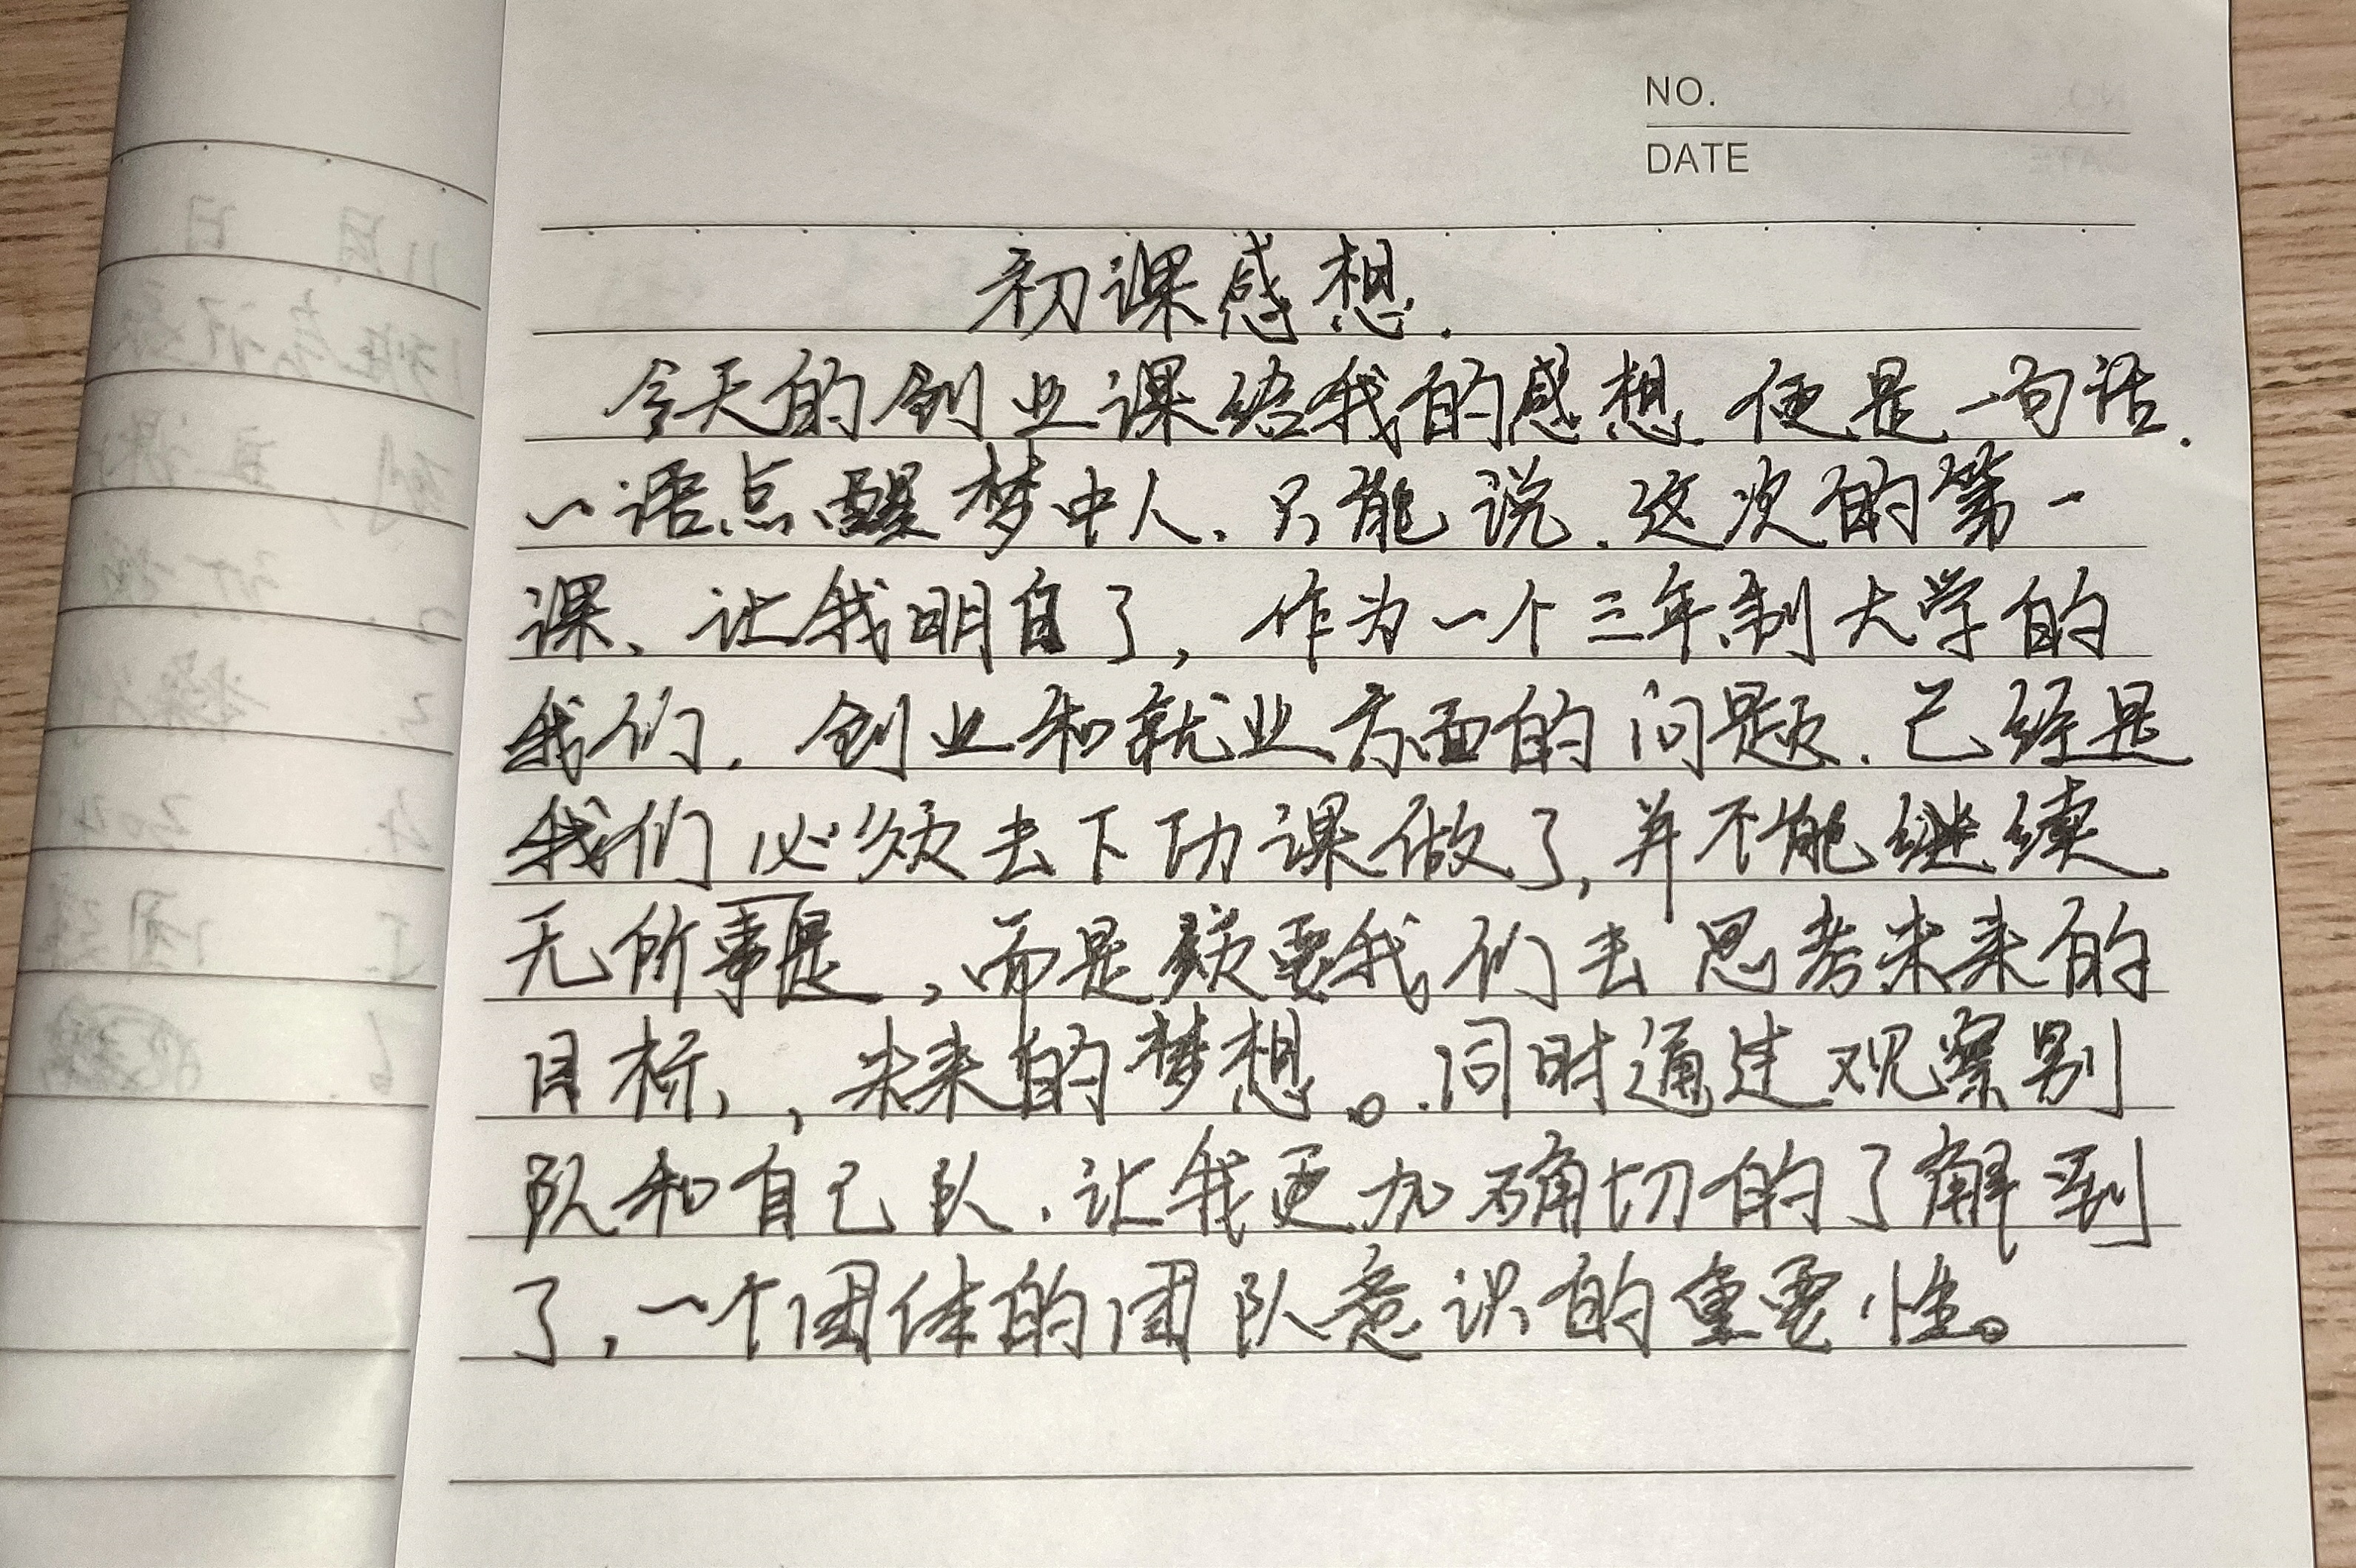 NO.
DATE
初课感想.
今天的创业课给我的感想.便是一句话.
一语点醒梦中人.只能说.这次的第一
课、让我明白了，作为一个三年制大学的
我们.创业和就业方面的问题.已经是
我们必须去下功课做了,并不能继续
无所事是,而是须要我们去思考未来的
目标,,未来的梦想。.同时通过观察别
队和自己队.让我更加确切的了解到
了,一个团体的团队意识的重要性。